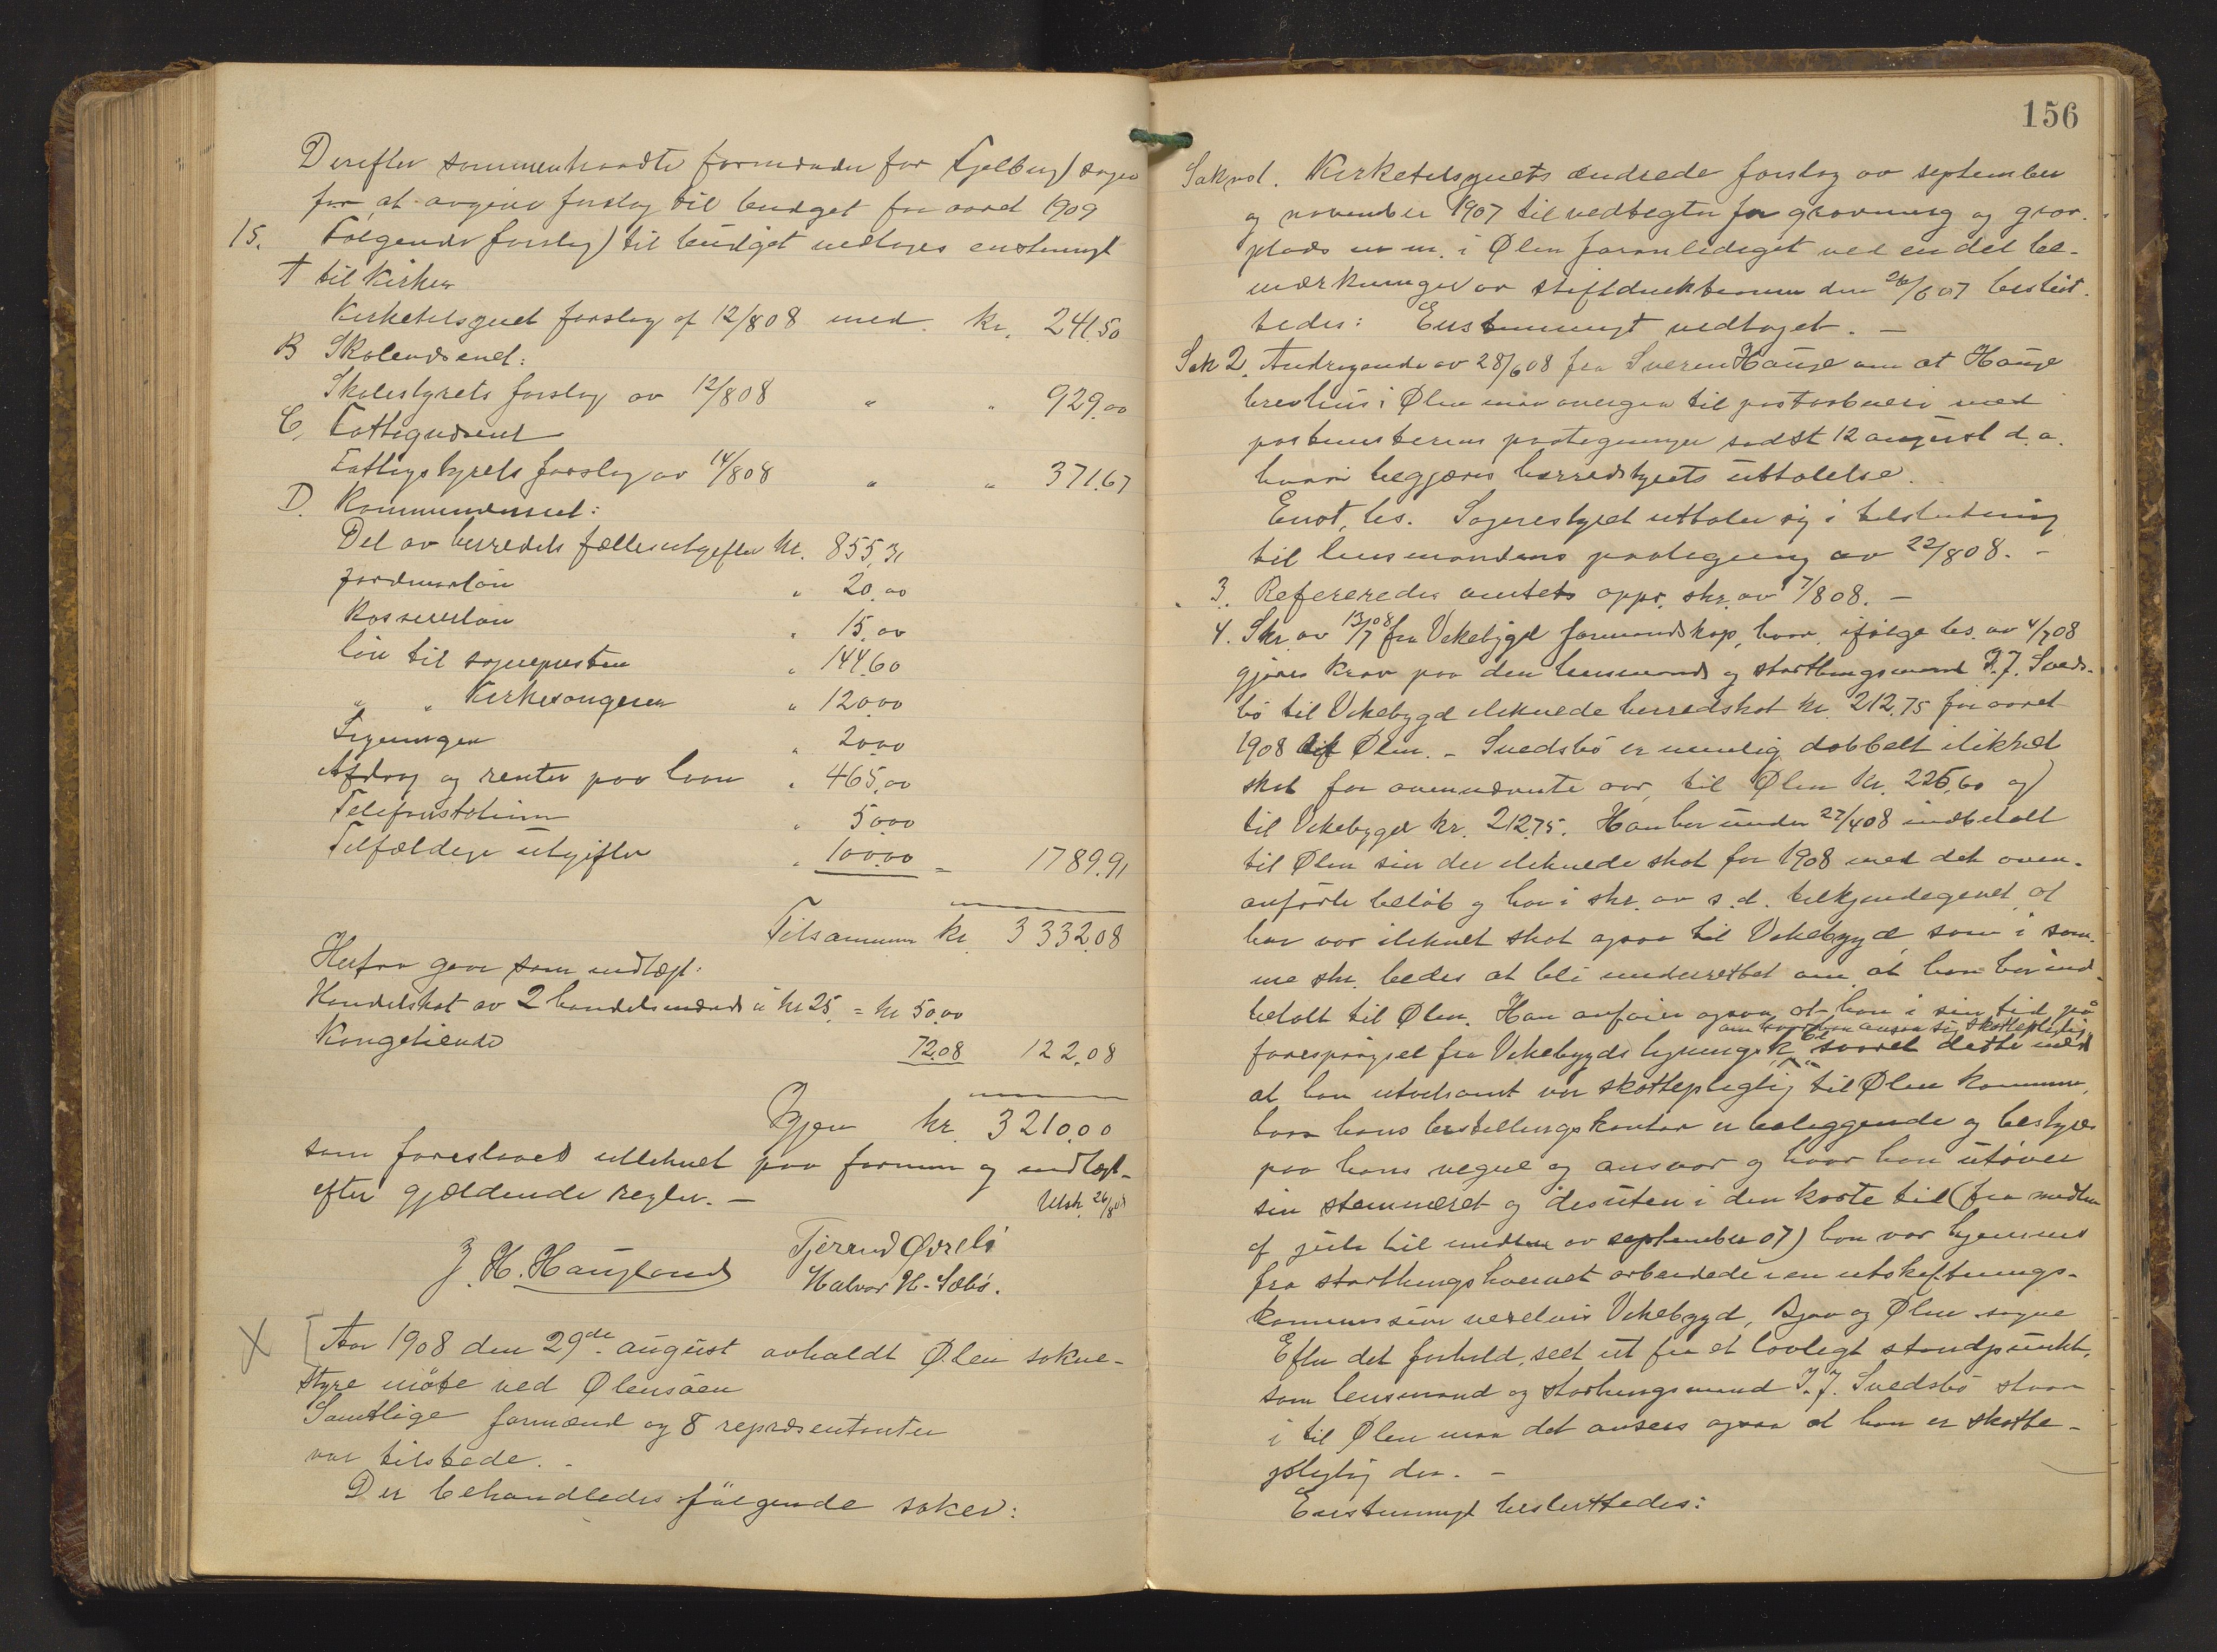 Derefter sammentraadte formænder for Fjelberg sogn
for at avgive forslag til budget for aaret 1909
15. Følgende forslag til budget vedtoges enstemmigt
A til Kirken
Kirketilsynet forslag af 12/8 08 med kr. 241,50
B Skolevæsenet:
Skolestyrets forslag av 12/8 08 " " 929,00
C, Fattigvæsenet
Fattigstyrets forslag av 14/8 08 " " 371,67
D. Kommunevæsenet:
Del av herredets fællesutgifter kr. 855,31
Jordmorløn " 20,00
Kassererløn " 15,00
Løn til sognepresten " 144,60
" " Kirkesangeren " 120,00
Ligningen " 20,00
Afdrag og renter paa laan " 465,00
Telefonstation " 50,00
Tilfældige utgifter " 100,00 = 1789,91
Tilsammen kr. 3332,08
Herfra gaar som indtægt:
Handelskat av 2 handelsmænd à kr 25, = kr 50,00
Kongetiende 72,08 122,08
Igjen kr. 3210,00
som foreslaaes utlignet paa formue og indtægt
efter gjældende regler. —
Utsk. 26/8 08
J. H. Haugland
Tjerand Øvrebø
Halvor H. Sæbø.
X [Aar 1908 den 29de august avholdt Ølen sokne-
styre møte ved Ølensøen
Samtlige formænd og 8 repræsentanter
var tilstede. -
Der behandledes følgende saker:
156
Sak no 1. Kirketilsynets ændrede forslag av september
og november 1907 til vedtegter for gravning og grav-
plads m. m. i Ølen foranlediget ved en del be-
mærkninger av stiftdirektionen den 26/6 07 beslut-
tedes: Enstemmigt vedtaget. —
Sak 2. Andragende av 28/6 08 fra Sveren Hauge om at Hauge
brevhus i Ølen maa overgaa til postaabneri med
postmesterens paategninger sidst 12 august d. a.
hvori begjæres herredstyrets uttalelse.
Enst. bes. Sognestyret uttaler sig i tilslutning
til lensmandens paategning av 22/8 08. -
3. Refereredes amtets oppr. skr. av 7/8 08. —
4. Skr. av 13/7 08 fra Vikebygd formandskap, hvor ifølge bes. av 4/7 08
gjøres krav paa den lensmand og stortingsmand I. J. Sveds-
bø til Vikebygd ilignede herredskat kr. 212,75 for aaret
1908 til Ølen. - Svedsbø er nemlig dobbelt iliknet
skat for ovennævnte aar, til Ølen kr. 226,60 og
til Vikebygd kr. 212,75. Han har under 27/4 08 indbetalt
til Ølen sin der ilignede skat for 1908 med det oven-
anførte beløb og har i skr. av s. d. tilkjendegivet at
han var iliknet skat ogsaa til Vikebygd, som i sam-
me skr. bedes at bli underrettet om at han har ind-
betalt til Ølen. Han anfører ogsaa at han i sin tid på
om hvor han ansaa sig skattepligtig
forespørgsel fra Vikebygds ligningsk. svaret dette med
at han utvilsomt var skattepligtig til Ølen kommune,
hvor hans bestillingskontor er beliggende og bestyres
paa hans vegne og ansvar og hvor han utøver
sin stemmeret og desuten i den korte tid (fra midten
af juli til midten av september 07) han var hjemme
fra storthingshvervet arbeidede i en utskiftnings-
kommission vedrørende Vikebygd, Bjoa og Ølen sogne
Efter det forhold, seet ut fra et lovlegt standpunkt,
som lensmand og stortingsmand I. J. Svedsbø staar
i til Ølen maa det ansees ogsaa at han er skatte-
pligtig der. —
Enstemmigt besluttedes: